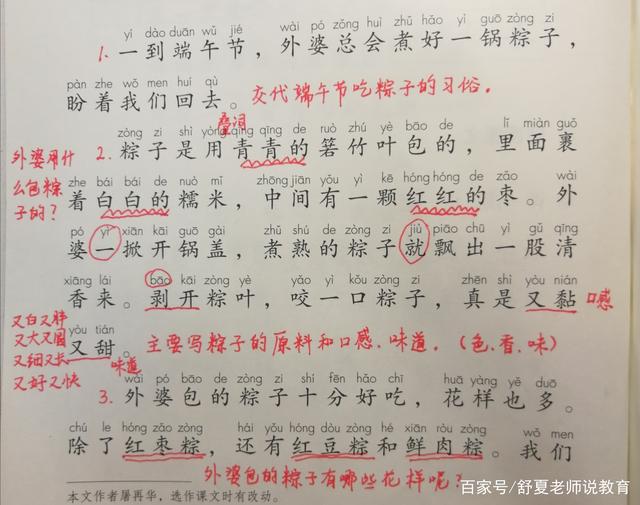 yí dào duān wǔ jié wài pó zǒng huì zhǔ hǎo yì guō zòng zi
1. 一到端午节，外婆总会煮好一锅粽子，
pàn zhe wǒ men huí qù
盼着我们回去。交代端午节吃粽子的习俗。
叠词
zòng zi shì yòng qīng qīng de ruò zhú yè bāo de lǐ miàn guǒ
2. 粽子是用青青的箬竹叶包的，里面裹
外婆用什
么包粽
子的？
zhe bái bái de nuò mǐ zhōng jiān yǒu yì kē hóng hóng de zǎo wài
着白白的糯米，中间有一颗红红的枣。外
pó yì xiān kāi guō gài zhǔ shú de zòng zi jiù piāo chū yì gǔ qīng
婆一掀开锅盖，煮熟的粽子就飘出一股清
xiāng lái bāo kāi zòng yè yǎo yì kǒu zòng zi zhēn shì yòu nián
香来。剥开粽叶，咬一口粽子，真是又黏
口感
yòu tián
又甜。味道 主要写粽子的原料和口感、味道。（色、香、味）
又白又胖
又大又圆
又细又长
又好又快
wài pó bāo de zòng zi shí fēn hǎo chī huā yàng yě duō
3. 外婆包的粽子十分好吃，花样也多。
chú le hóng zǎo zòng hái yǒu hóng dòu zòng hé xiān ròu zòng wǒ men
除了红枣粽，还有红豆粽和鲜肉粽。我们
外婆包的粽子有哪些花样呢？
本文作者屠再华，选作课文时有改动。
百家号/舒夏老师说教育